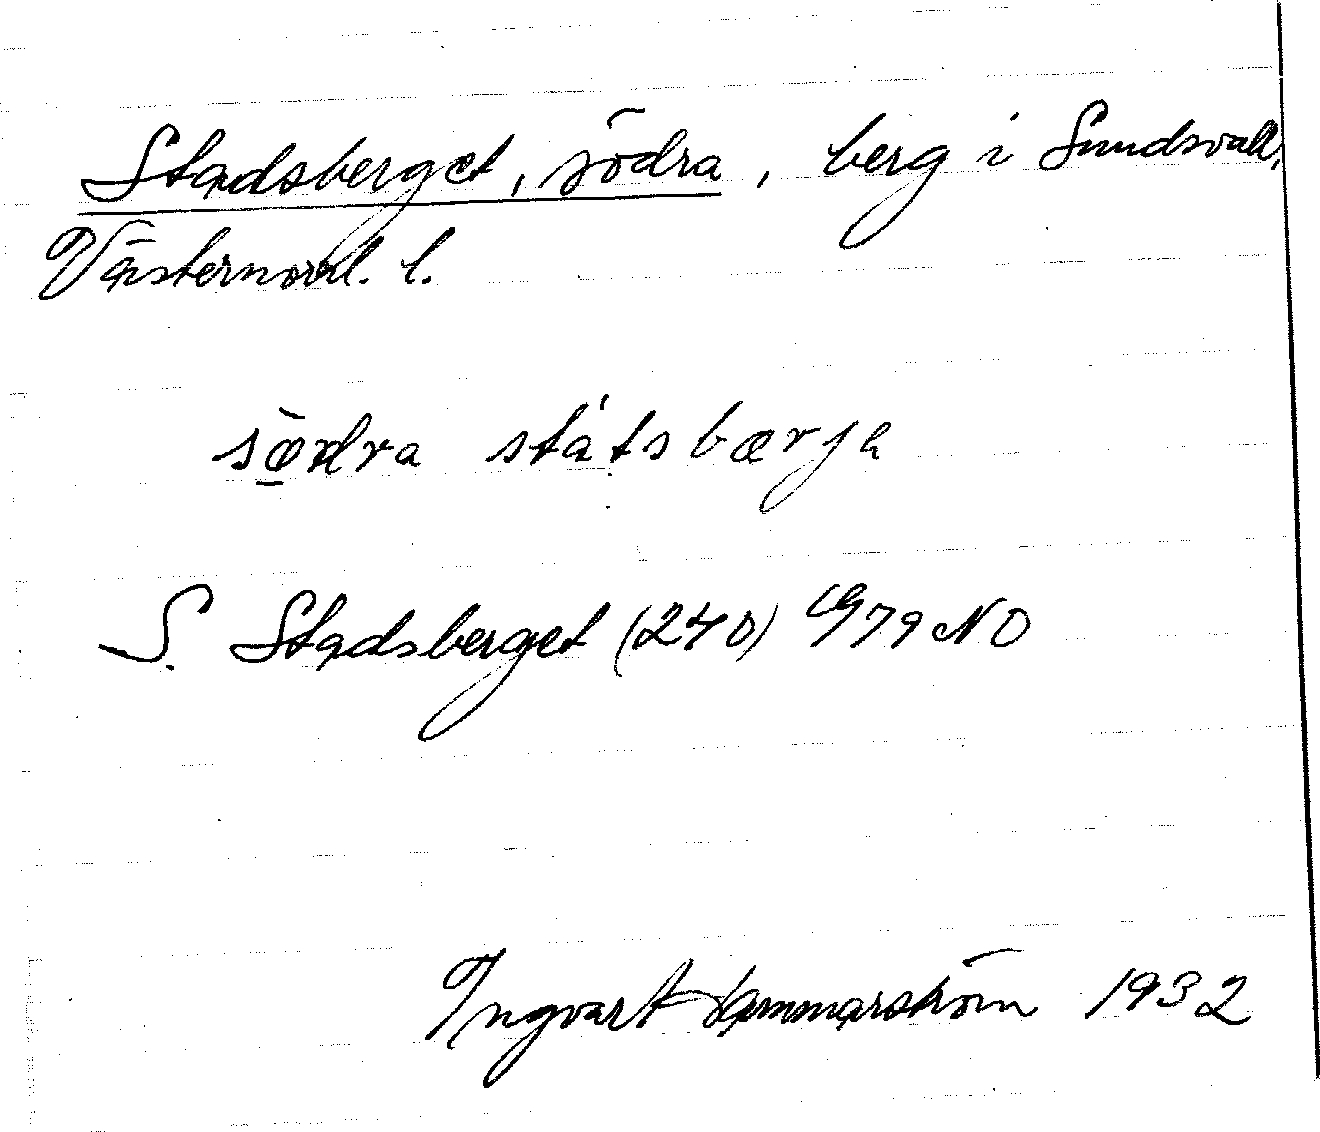 Stadsberget, södra, berg i Sundsvall,
Västernorrl. l.
sö̱̀dra státsbærja
S. Stadsberget (240) G79 NO
Ingvart Hammarström 1932